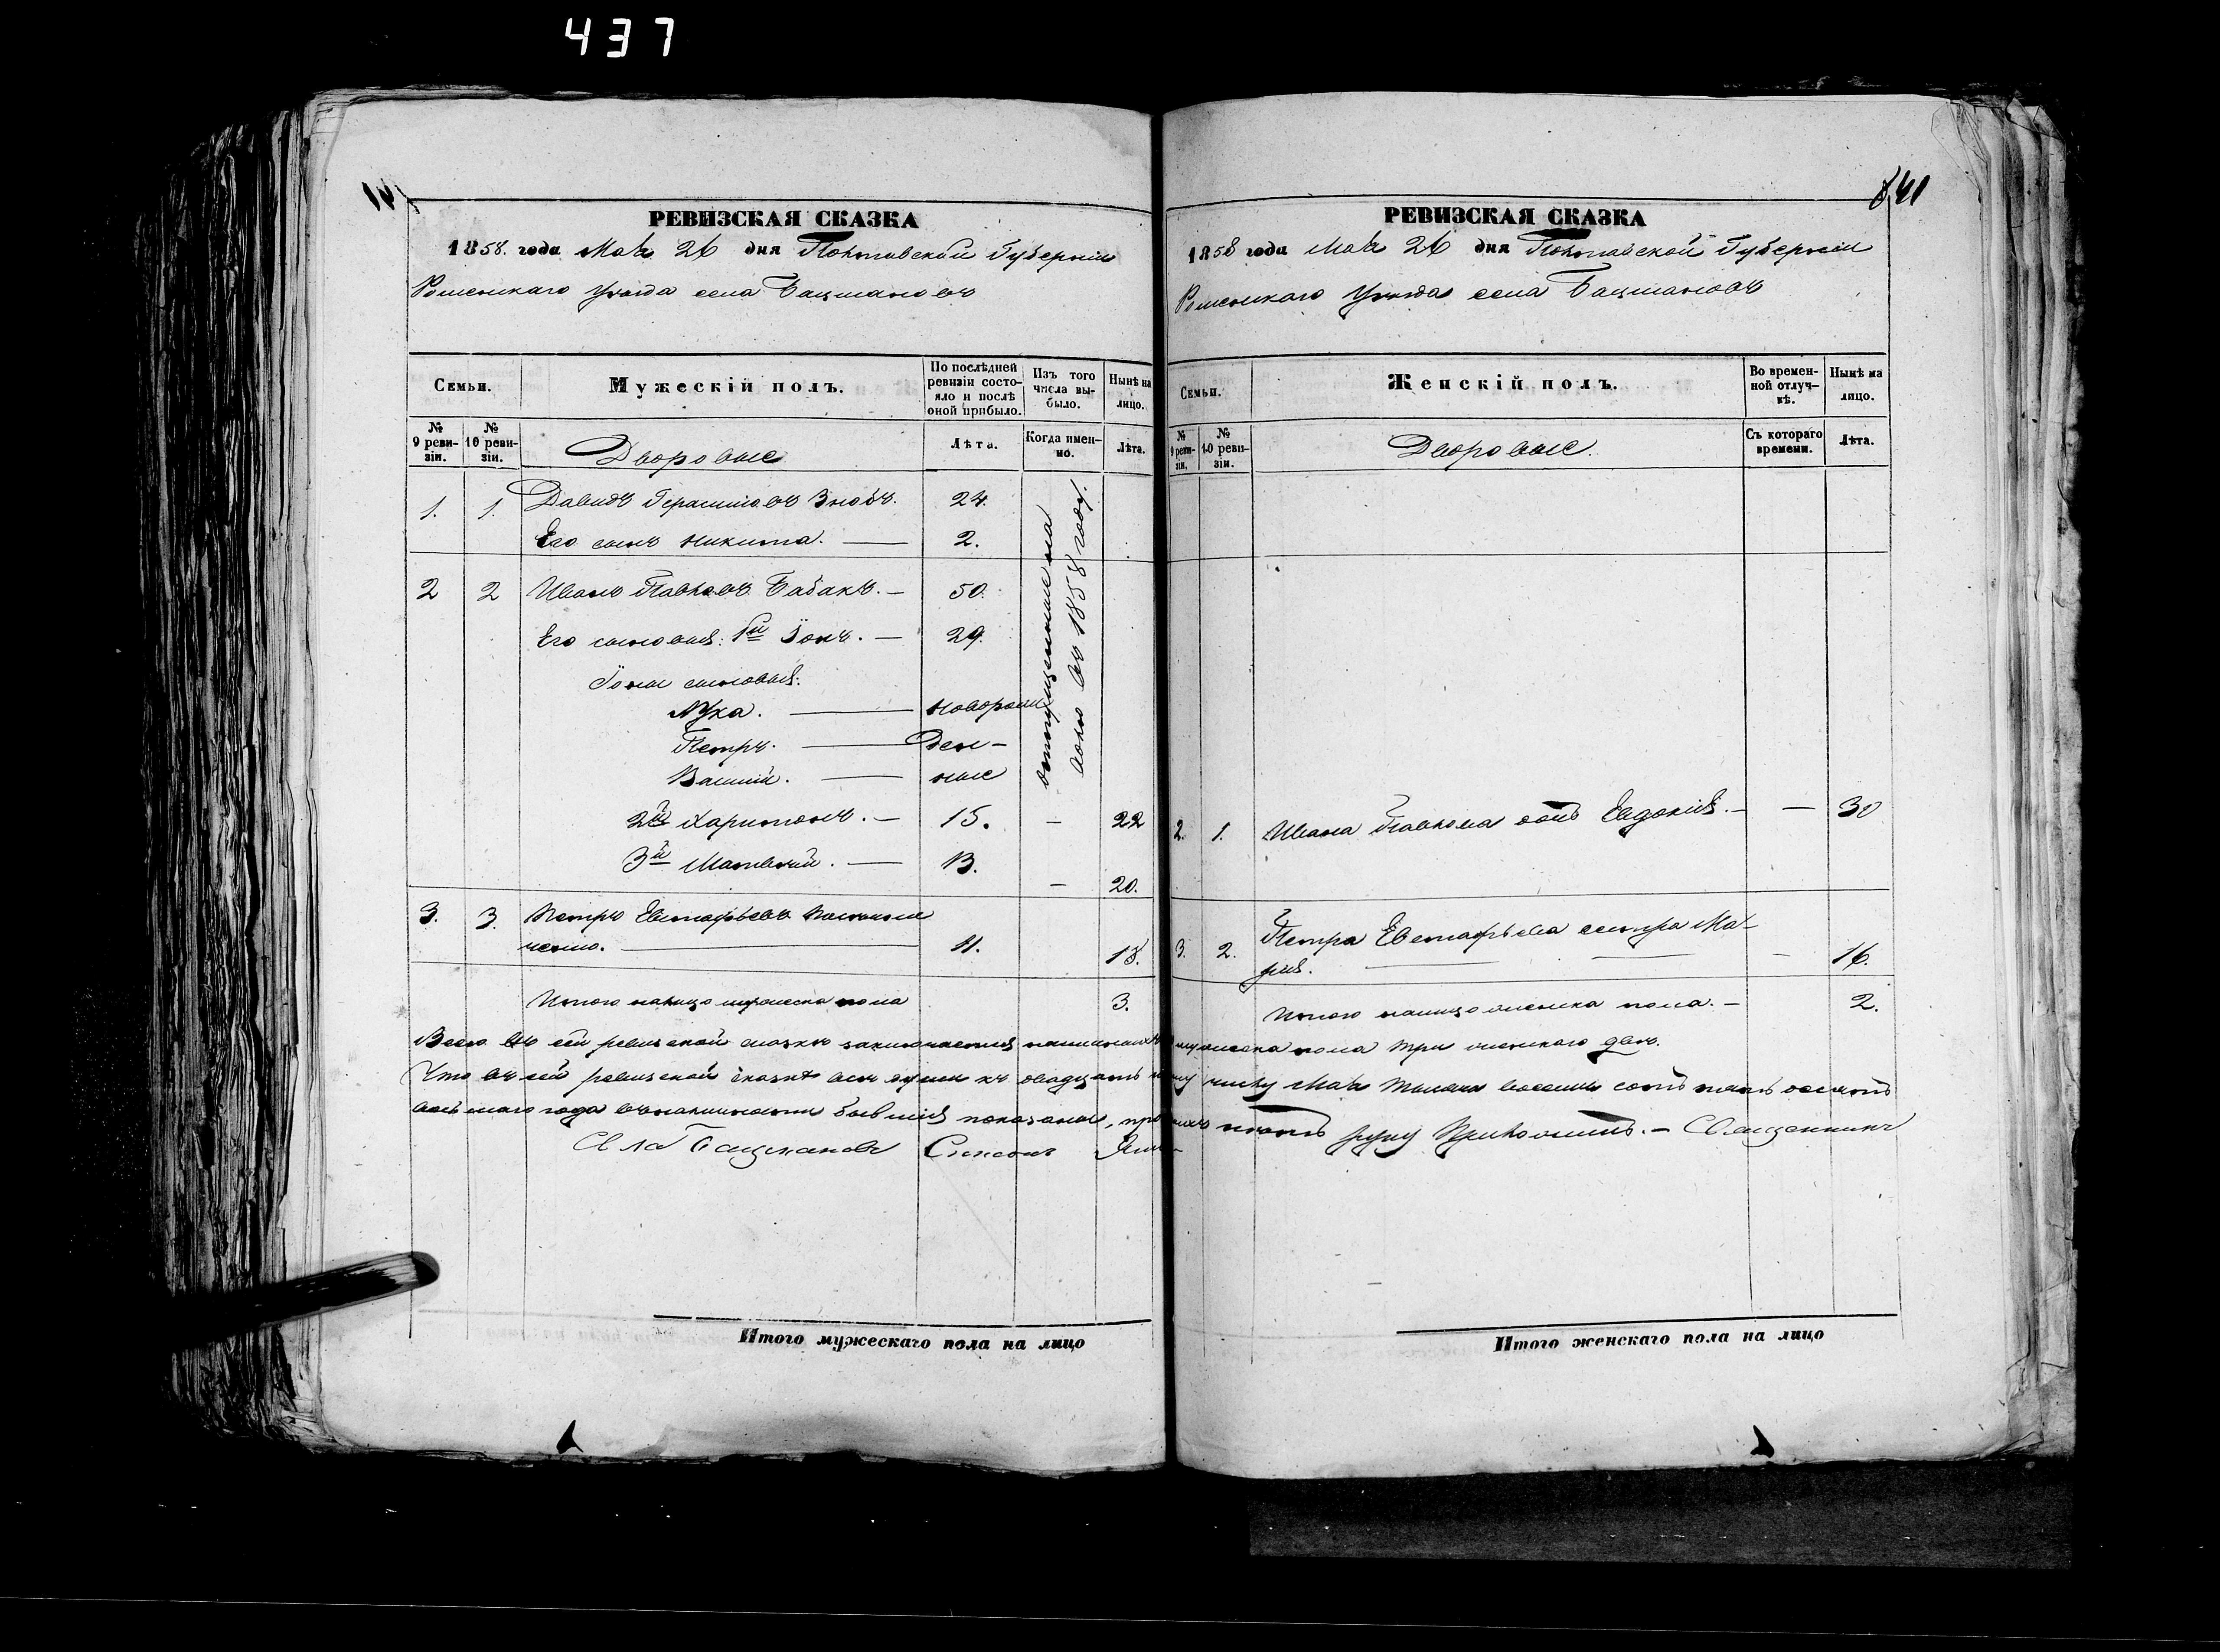 437
РЕВИЗСКАЯ СКАЗКА
1858. года Мая 26 дня Полтавской Губерніи
Роменскаго Уѣзда села Бацмановъ
Семьи.
Мужескій полъ.
По послѣдней ревизіи состояло и послѣ оной прибыло.
Изъ того числа выбыло.
Нынѣ на лицо.
№ 9 ревизіи.
№ 10 ревизіи.
Дворовые
Лѣта.
Когда именно.
Лѣта.
1. 1. Давидъ Герасимовъ Знобъ. 24.
Его сынъ Никита. — 2.
2 2 Иванъ Павловъ Бабакъ. — 50.
Его сыновья: 1й Іона. — 29.
Іоны сыновья:
Лука. — новорож
Петръ. — ден-
Василій. — ные
отпущенные на волю въ 1858 году.
2й Харитонъ. — 15. — 22
3й Матвѣй. — 13. — 20.
3. 3. Петръ Евстафьевъ
11. 18.
Итого налицо мужеска пола 3.
841
РЕВИЗСКАЯ СКАЗКА
1858 года Мая 26 дня Полтавской Губерніи
Роменскаго Уѣзда села Бацмановъ
Семьи.
Женскій полъ.
Во временной отлучкѣ.
Нынѣ на лицо.
№ 9 ревизіи.
№ 10 ревизіи.
Дворовые.
Съ котораго времени.
Лѣта.
2. 1. Ивана Павлова дочь Евдокія. — — 30
3. 2. Петра Евстафьева сестра Ма-
рія. — 16.
Итого налицо женска пола. — 2.
Всего въ сей ревизской сказкѣ заключается наличныхъ мужеска пола три женскаго двѣ.
Что въ сей ревизской сказкѣ всѣ души къ двадцать числу Мая тысяча восемь сотъ пять десятъ
восьмаго года въ наличности бывшія показаны, Священникъ
села Бацмановъ Симеонъ
Итого мужескаго пола на лицо
Итого женскаго пола на лицо